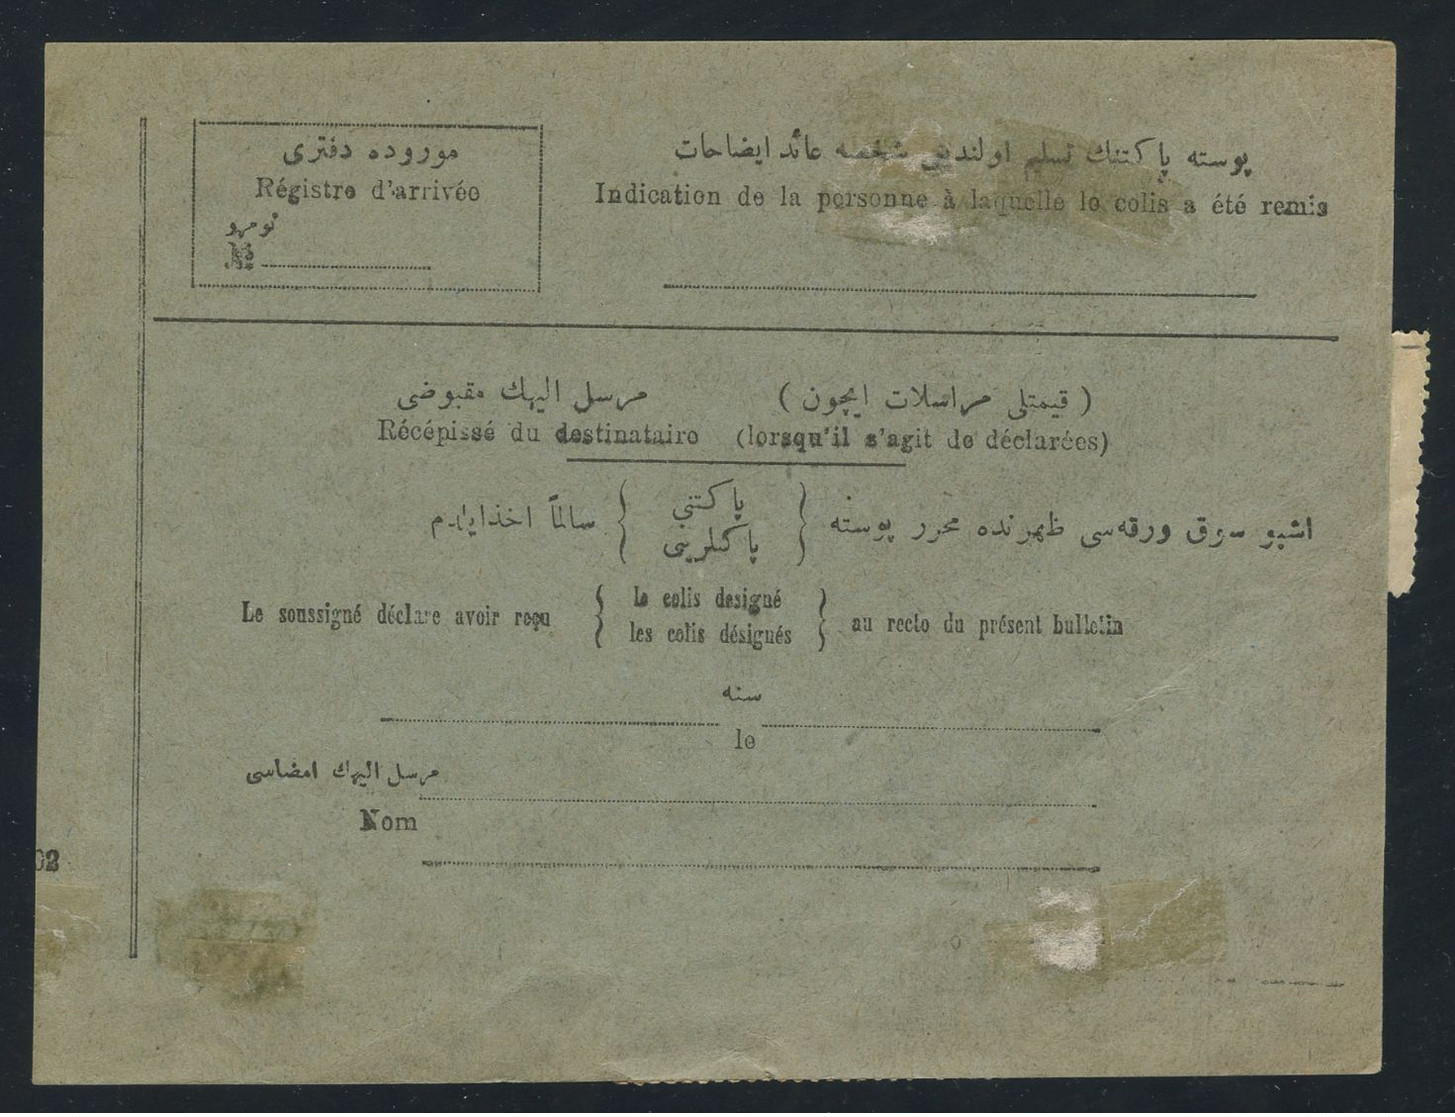 موروده دفتری
Régistre d'arrivée
نومرو
№
پوسته پاكتنك تسليم اولنديغى شخصه عائد ايضاحات
Indication de la personne à laquelle le colis a été remis
مرسل اليهك مقبوضى ( قيمتلى مراسلات ايچون )
Récépissé du destinataire (lorsqu'il s'agit de déclarées)
اشبو سوق ورقه‌سى ظهرنده محرر پوسته { پاكتنى پاكتلرينى } سالماً اخذ ايلدم
Le soussigné déclare avoir reçu { le colis designé les colis désignés } au recto du présent bulletin
سنه
le
مرسل اليهك امضاسى
Nom
02